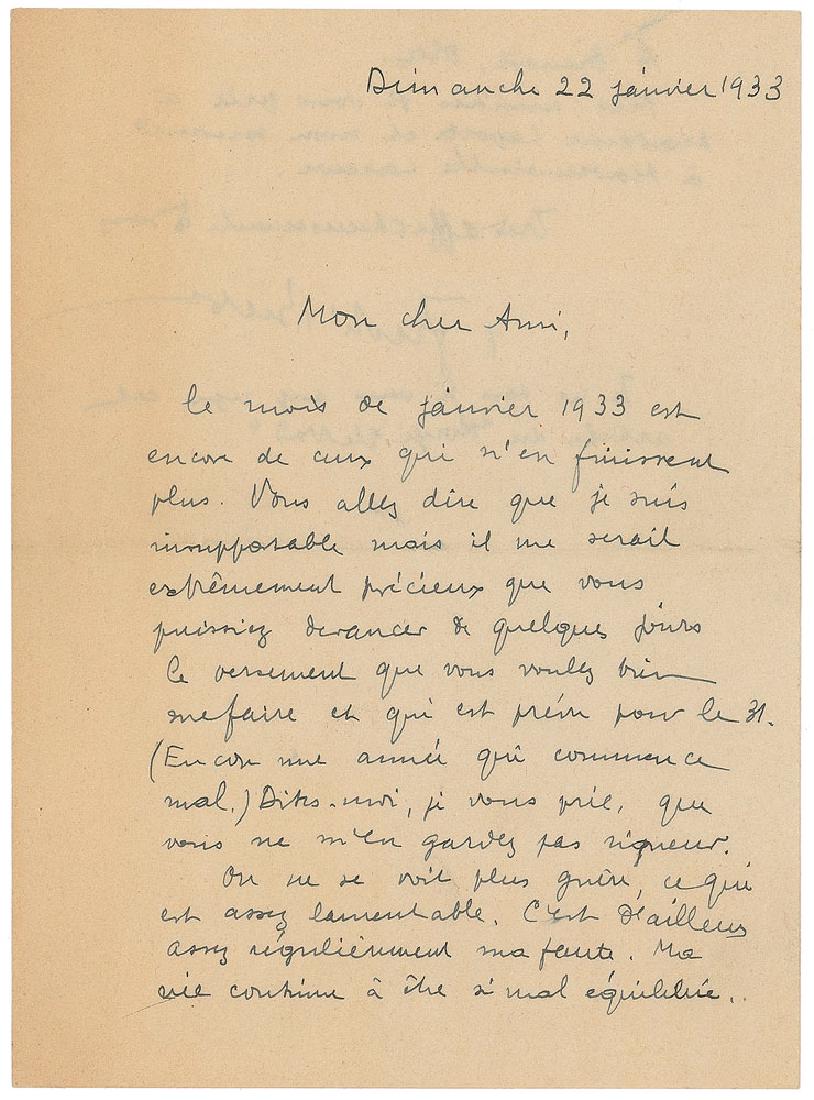 Dimanche 22 janvier 1933
Mon cher Ami,
Le mois de janvier 1933 est
encore de ceux qui n'en finissent
plus. Vous allez dire que je suis
insupportable mais il me serait
extrêmement précieux que vous
puissiez devancer de quelques jours
le versement que vous voulez bien
me faire et qui est prévu pour le 31.
(Encore une année qui commence
mal.) Dites-moi, je vous prie, que
vous ne m'en gardez pas rigueur.
On ne se voit plus guère, ce qui
est assez lamentable. C'est d'ailleurs
assez régulièrement ma faute. Ma
vie continue à être si mal équilibrée.